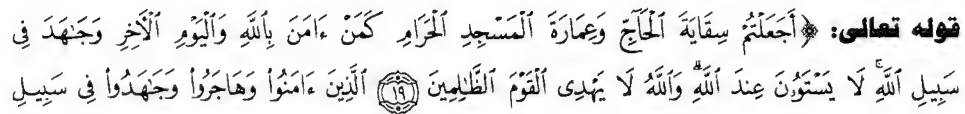 قوله تعالى: ﴿أَجَعَلْتُمْ سِقَايَةَ الْحَاجِّ وَعِمَارَةَ الْمَسْجِدِ الْحَرَامِ كَمَنْ ءَامَنَ بِاللَّهِ وَالْيَوْمِ الْآخِرِ وَجَٰهَدَ فِى
سَبِيلِ اللَّهِ ۚ لَا يَسْتَوُۥنَ عِندَ اللَّهِ ۗ وَاللَّهُ لَا يَهْدِى الْقَوْمَ الظَّٰلِمِينَ ١٩ الَّذِينَ ءَامَنُوا۟ وَهَاجَرُوا۟ وَجَٰهَدُوا۟ فِى سَبِيلِ